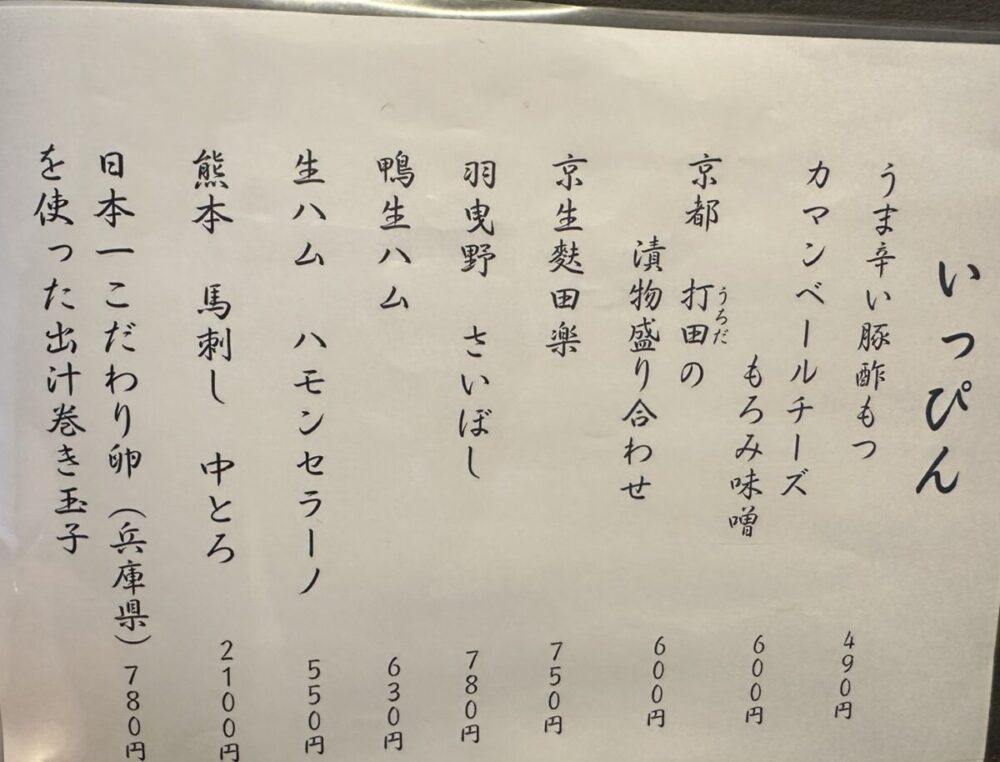 いっぴん
うま辛い豚酢もつ 490円
カマンベールチーズ
もろみ味噌 600円
京都 打田の
うろだ
漬物盛り合わせ 600円
京生麩田楽 750円
羽曳野 さいぼし 780円
鴨生ハム 630円
生ハム ハモンセラーノ 550円
熊本 馬刺し 中とろ 2100円
日本一こだわり卵(兵庫県) 780円
を使った出汁巻き玉子